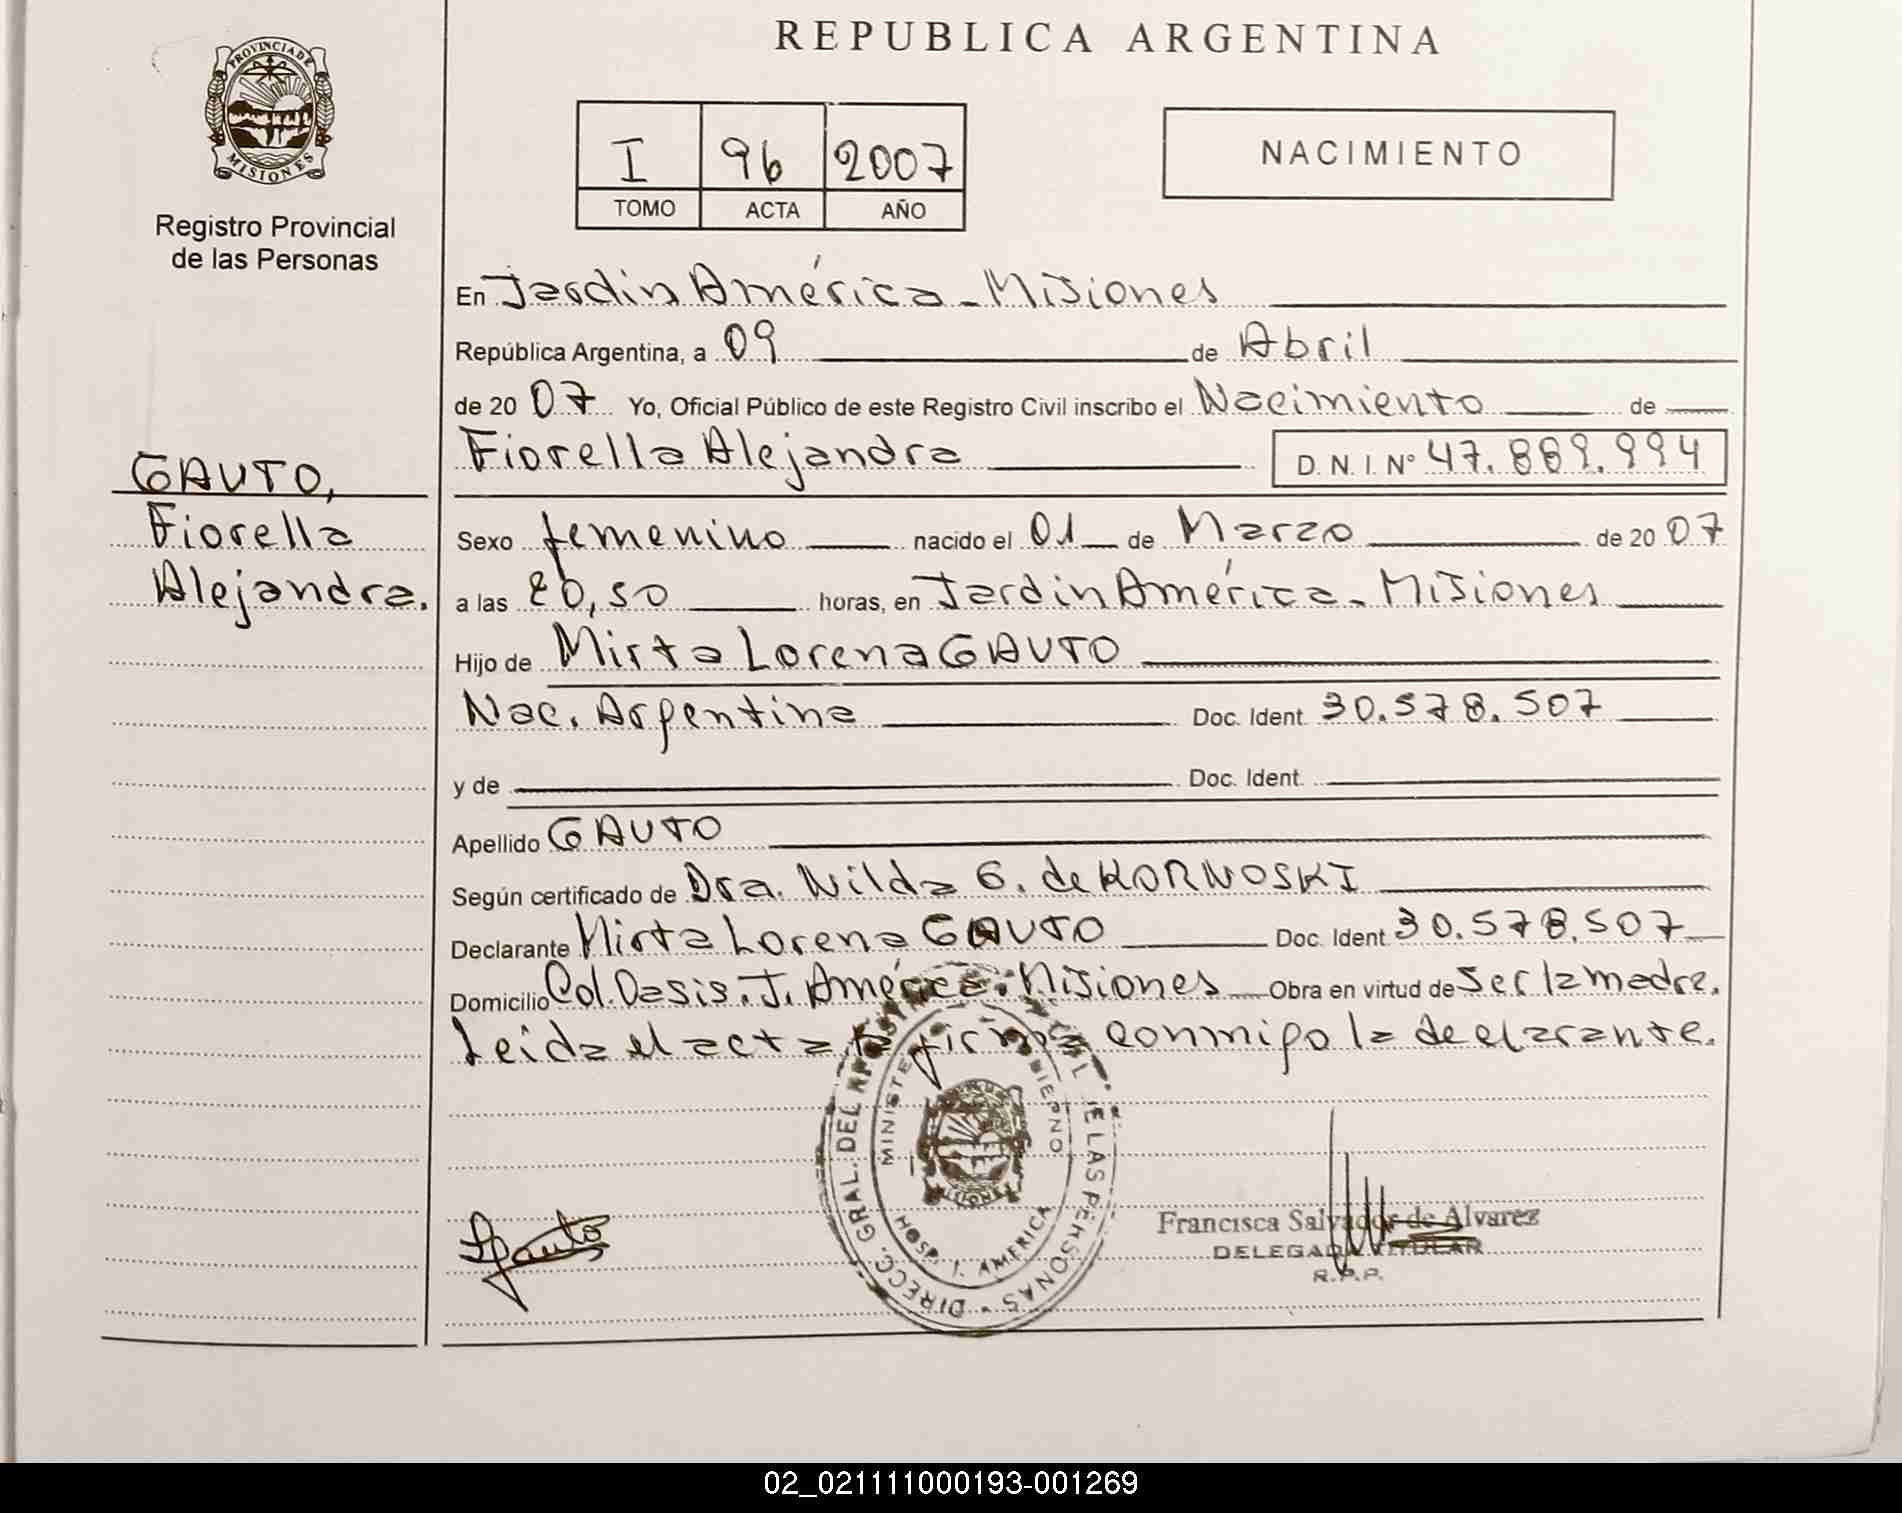 REPUBLICA ARGENTINA
PROVINCIA DE
MISIONES
Registro Provincial
de las Personas
I 96 2007
TOMO ACTA AÑO
NACIMIENTO
En Jardin América - Misiones
República Argentina, a 09 de Abril
de 2007 Yo, Oficial Público de este Registro Civil inscribo el Nacimiento de
Fiorella Alejandra D. N. I. Nº 47.889.994
GAUTO,
Fiorella
Alejandra.
Sexo femenino nacido el 01 de Marzo de 2007
a las 20,50 horas, en Jardin América - Misiones
Hijo de Mirta Lorena GAUTO
Nac. Argentina Doc. Ident. 30.578.507
y de Doc. Ident.
Apellido GAUTO
Según certificado de Dra. Nilda G. de KORNOSKI
Declarante Mirta Lorena GAUTO Doc. Ident. 30.578.507
Domicilio Col. Oasis. J. América. Misiones Obra en virtud de Ser la madre.
Leida el acta la firma conmigo la declarante.
DIRECC. GRAL. DEL DE LAS PERSONAS
HOSP. J. AMERICA
Gauto
Francisca Salvador de Alvarez
DELEGADA TITULAR
R.P.P.
02_021111000193-001269